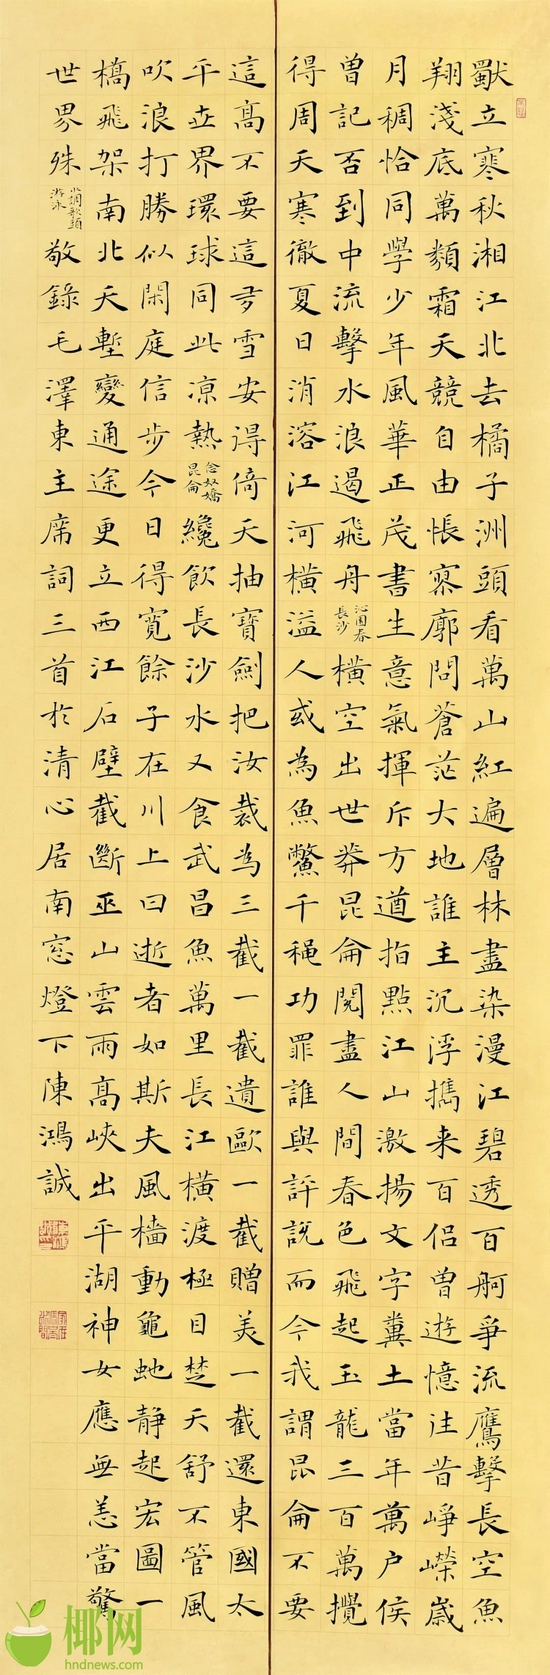 獨立寒秋湘江北去橘子洲頭看萬山紅遍層林盡染漫江碧透百舸爭流鷹擊長空魚
翔淺底萬類霜天競自由悵寥廓問蒼茫大地誰主沉浮攜来百侶曾遊憶往昔崢嶸歲
月稠恰同學少年風華正茂書生意氣揮斥方遒指點江山激揚文字糞土當年萬户侯
曾記否到中流擊水浪遏飛舟沁園春長沙橫空出世莽昆侖閱盡人間春色飛起玉龍三百萬攪
得周天寒徹夏日消溶江河橫溢人或為魚鱉千秋功罪誰與評說而今我謂昆侖不要
這高不要這多雪安得倚天抽寶劍把汝裁為三截一截遺歐一截贈美一截還東國太
平世界環球同此凉熱念奴嬌昆侖纔飲長沙水又食武昌魚萬里長江橫渡極目楚天舒不管風
吹浪打勝似閑庭信步今日得寬餘子在川上曰逝者如斯夫風檣動龜蛇静起宏圖一
橋飛架南北天塹變通途更立西江石壁截斷巫山雲雨高峽出平湖神女應無恙當驚
世界殊水調歌頭游泳敬錄毛澤東主席詞三首於清心居南窓燈下陳鴻誠
椰网
hndnews.com